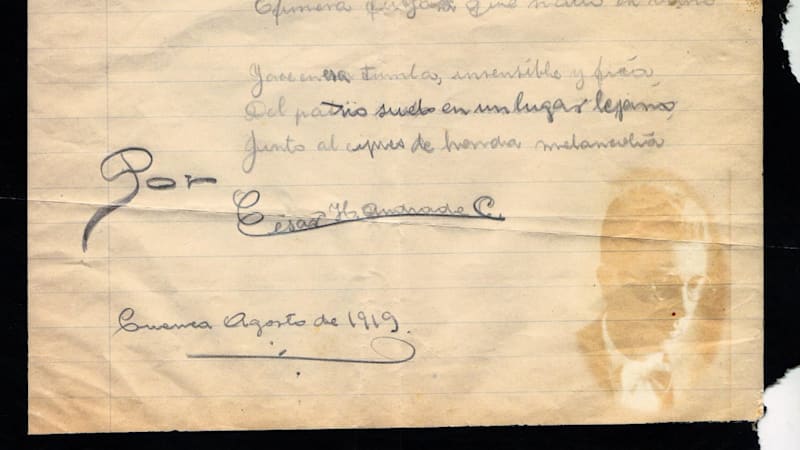 Efímera que nació en
Yace en esa tumba, insensible y fría
Del patrio suelo en un lugar lejano,
Junto al cipres de honda melancolía
Por
César H. Andrade C.
Cuenca Agosto de 1919.